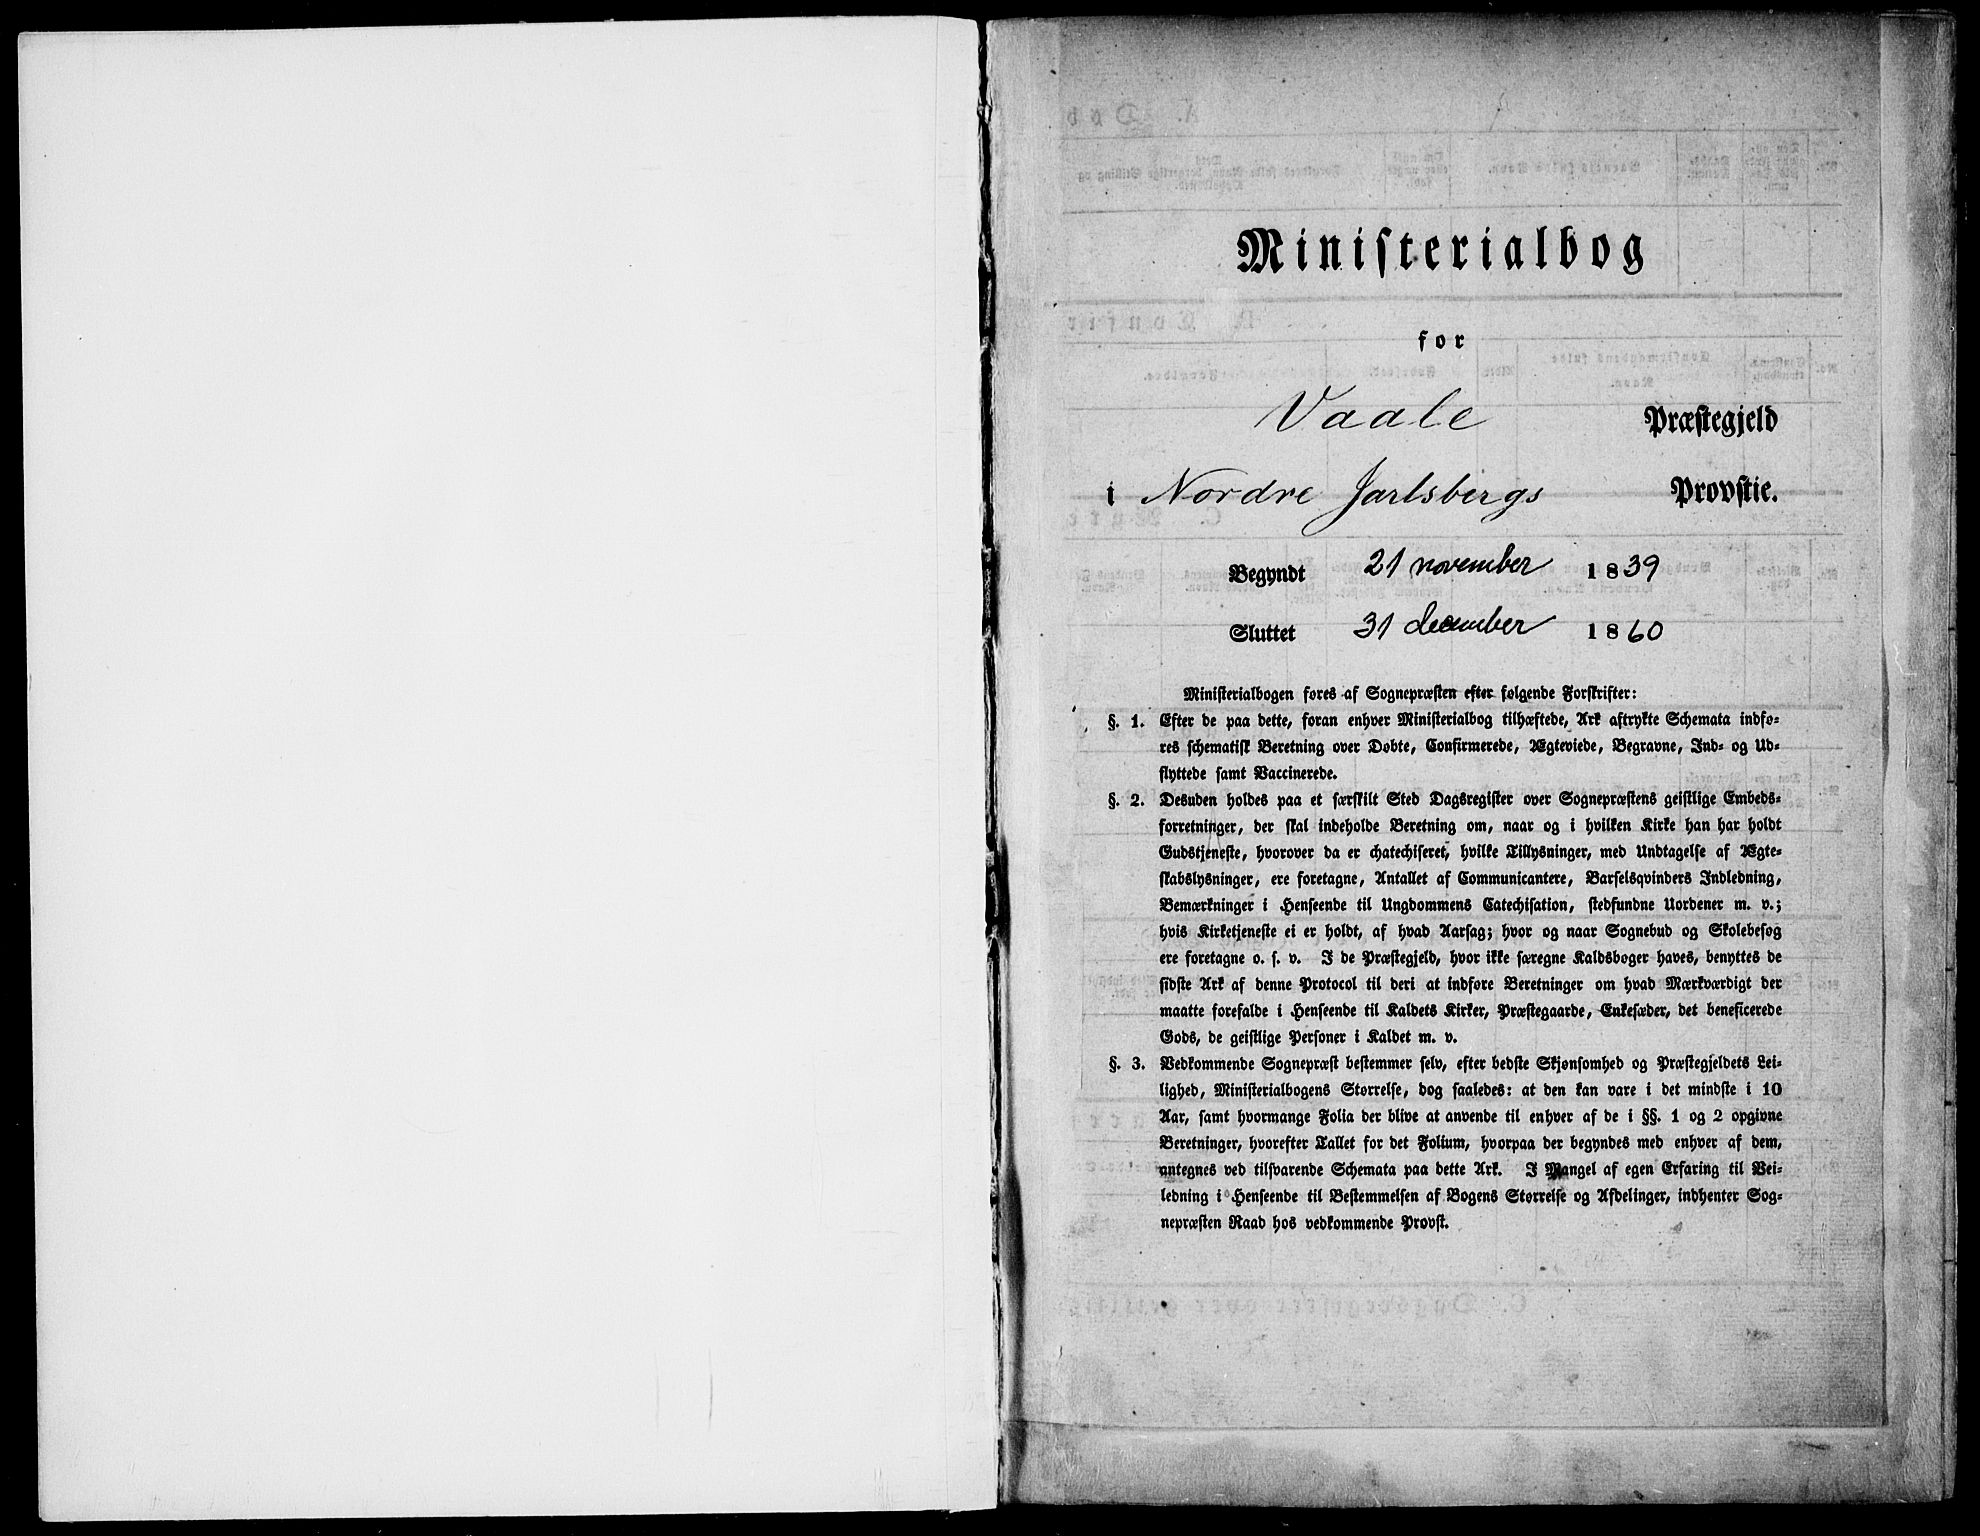 Ministerialbog
for
Vaale Præstegjeld
i Nordre Jarlsbergs Provstie.
Begyndt 21 november 1839
Sluttet 31 december 1860
Ministerialbogen føres af Sognepræsten efter følgende Forskrifter:
§. 1. Efter de paa dette, foran enhver Ministerialbog tilhæftede, Ark aftrykte Schemata indfø-
res schematisk Beretning over Døbte, Confirmerede, Ægteviede, Begravne, Ind- og Ud-
flyttede samt Vaccinerede.
§. 2. Desuden holdes paa et særskilt Sted Dagsregister over Sognepræstens geistlige Embeds-
forretninger, der skal indeholde Beretning om, naar og i hvilken Kirke han har holdt
Gudstjeneste, hvorover da er chatechiseret, hvilke Tillysninger, med Undtagelse af Ægte-
skabslysninger, ere foretagne, Antallet af Communicantere, Barselsqvinders Indledning,
Bemærkninger i Henseende til Ungdommens Catechisation, stedfundne Uordener m. v.;
hvis Kirketjeneste ei er holdt, af hvad Aarsag; hvor og naar Sognebud og Skolebesøg
ere foretagne o. s. v. I de Præstegjeld, hvor ikke særegne Kaldsbøger haves, benyttes de
sidste Ark af denne Protocol til deri at indføre Beretninger om hvad Mærkværdigt der
maatte forefalde i Henseende til Kaldets Kirker, Præstegaarde, Enkesæder, det beneficerede
Gods, de geistlige Personer i Kaldet m. v.
§. 3. Vedkommende Sognepræst bestemmer selv, efter bedste Skjønsomhed og Præstegjeldets Lei-
lighed, Ministerialbogens Størrelse, dog saaledes: at den kan vare i det mindste i 10
Aar, samt hvormange Folia der blive at anvende til enhver af de i §§. 1 og 2 opgivne
Beretninger, hvorefter Tallet for det Folium, hvorpaa der begyndes med enhver af dem,
antegnes ved tilsvarende Schemata paa dette Ark. I Mangel af egen Erfaring til Vei-
ledning i Henseende til Bestemmelsen af Bogens Størrelse og Afdelinger, indhenter Sog-
nepræsten Raad hos vedkommende Provst.